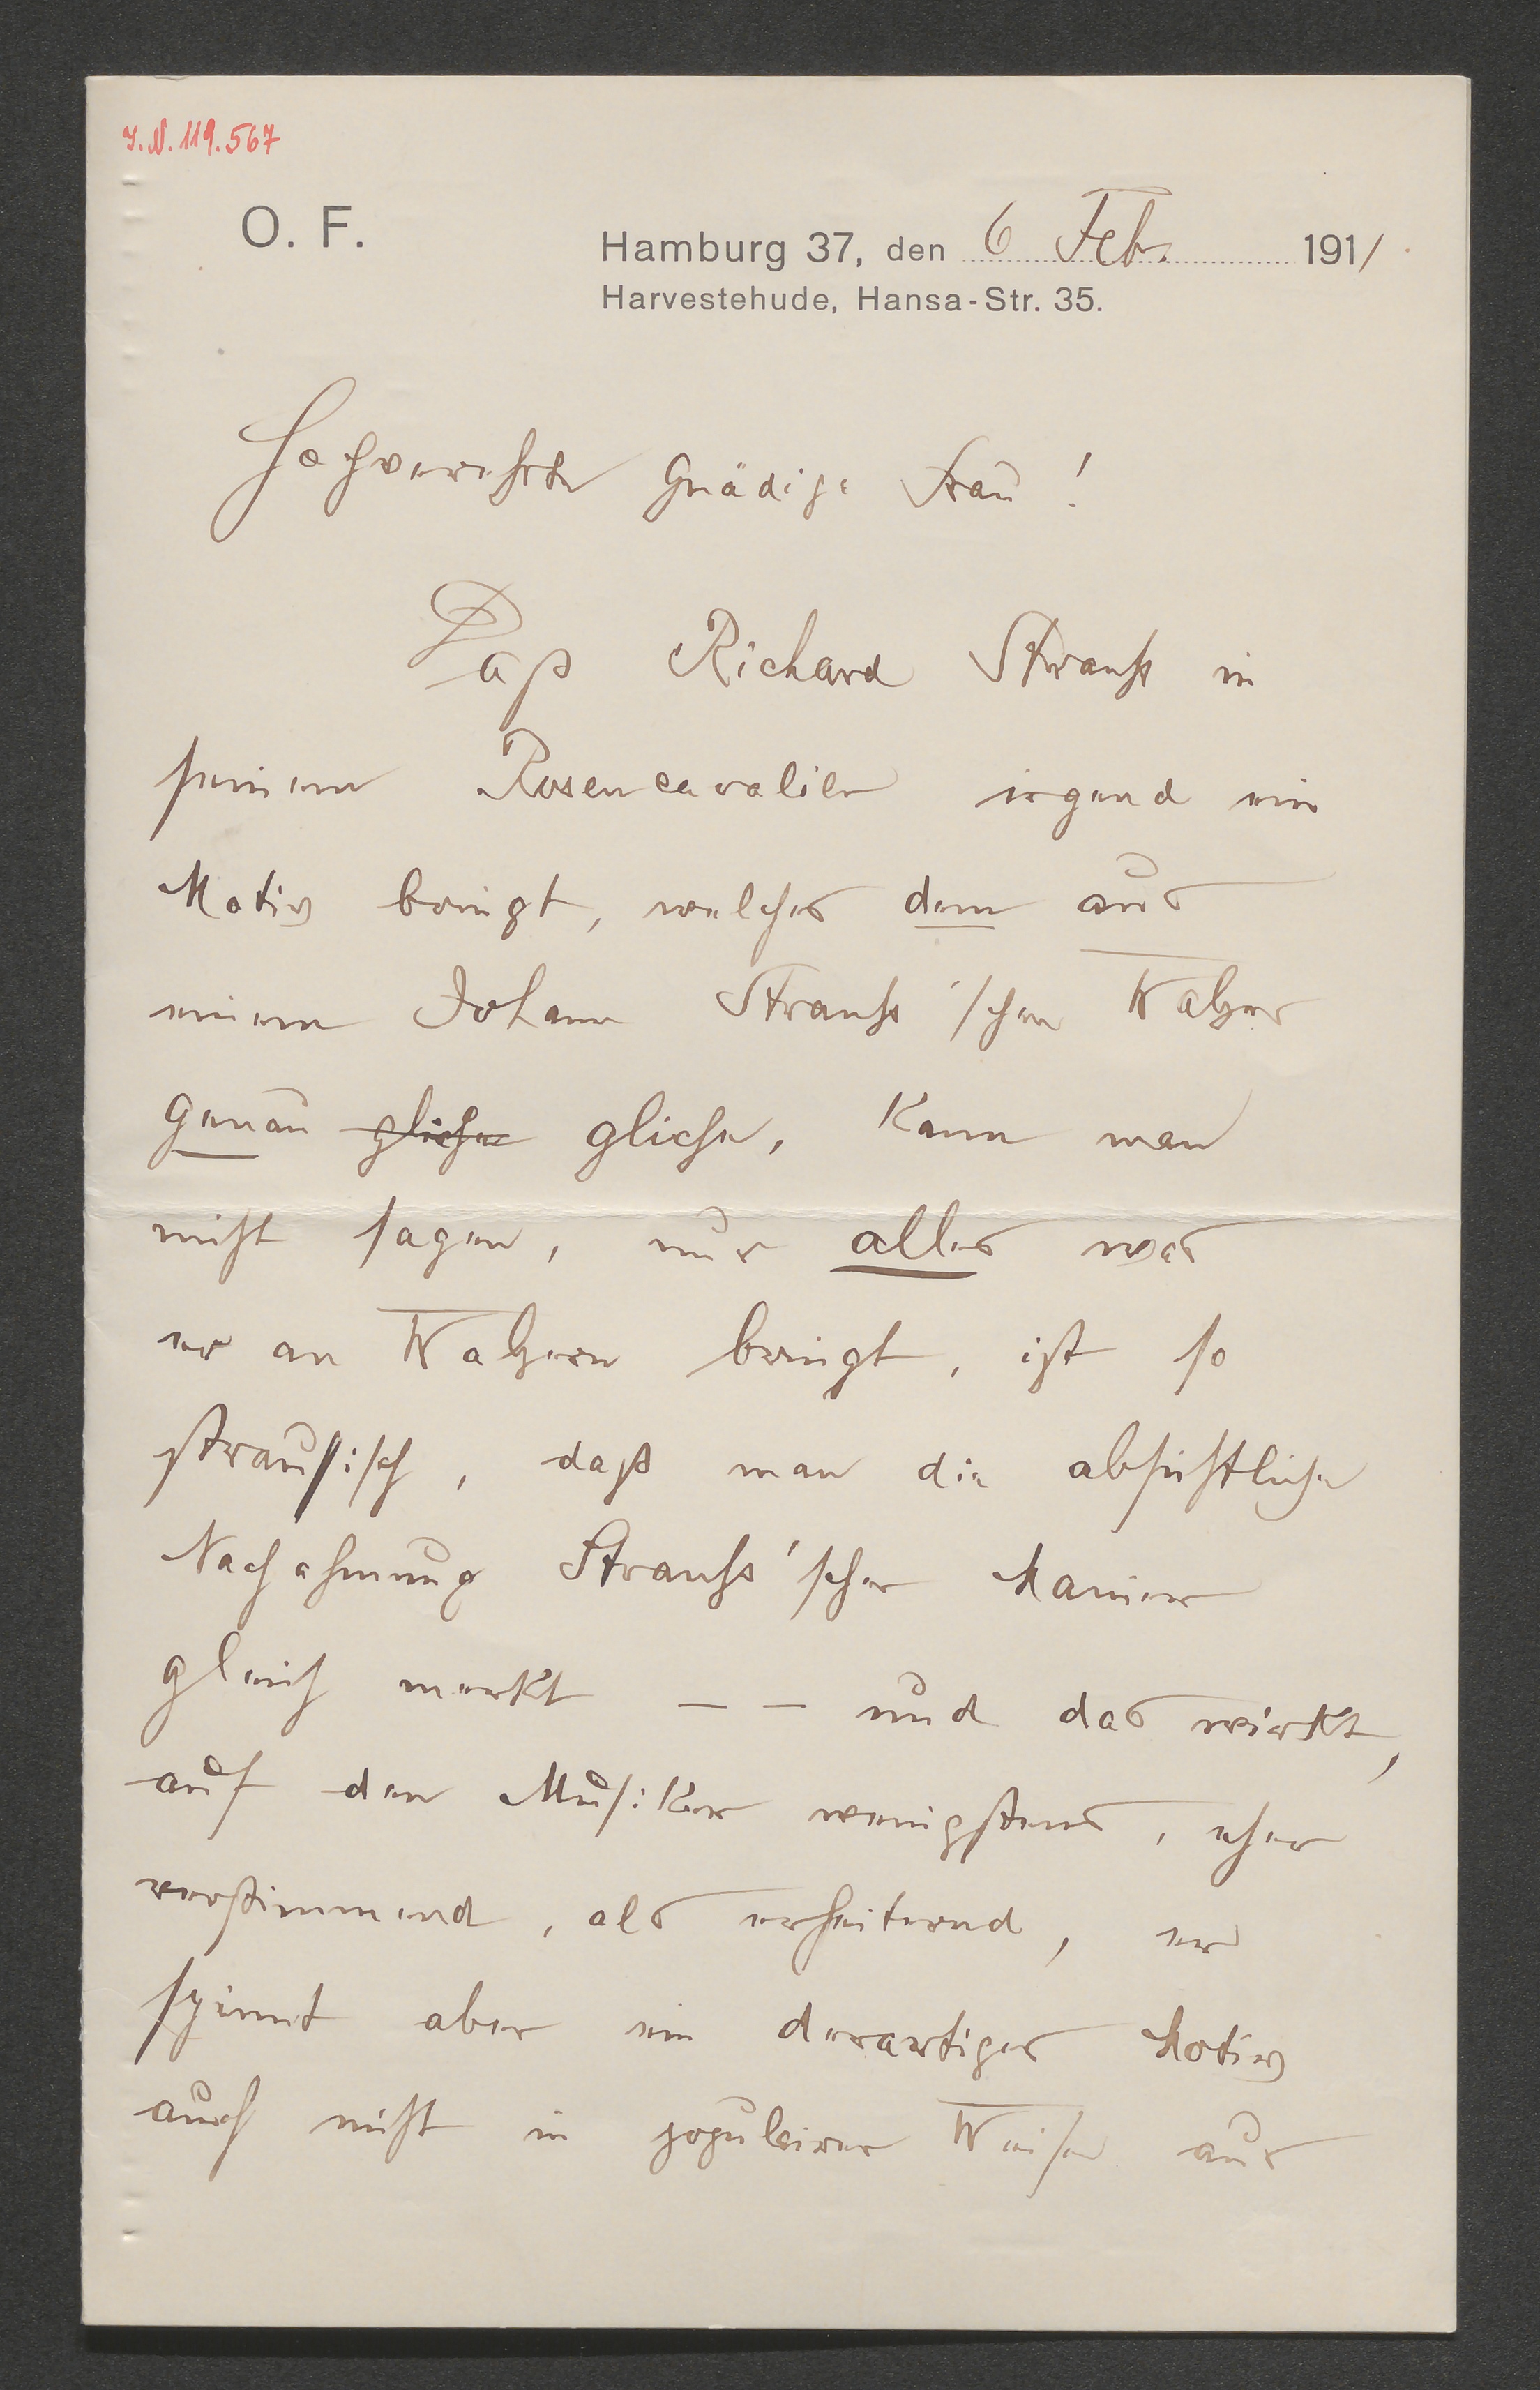 I.N. 119.567
O. F.
Hamburg 37, den 6 Feb. 1911
Harvestehude, Hansa-Str. 35.
Hochverehrte Gnädige Frau!
Daß Richard Strauss in
seinem Rosencavalier irgend ein
Motiv bringt, welches dem aus
einem Johann Strauss'schen Walzer
genau gliche gliche, kann man
nicht sagen, nur alles was
er an Walzern bringt, ist so
straußisch, daß man die absichtliche
Nachahmung Strauss'scher Manier
gleich merkt — — und das wirkt,
auf den Musiker wenigstens, eher
verstimmend, als erheiternd, er
spinnt aber ein derartiges Motiv
auch nicht in populairer Weise aus